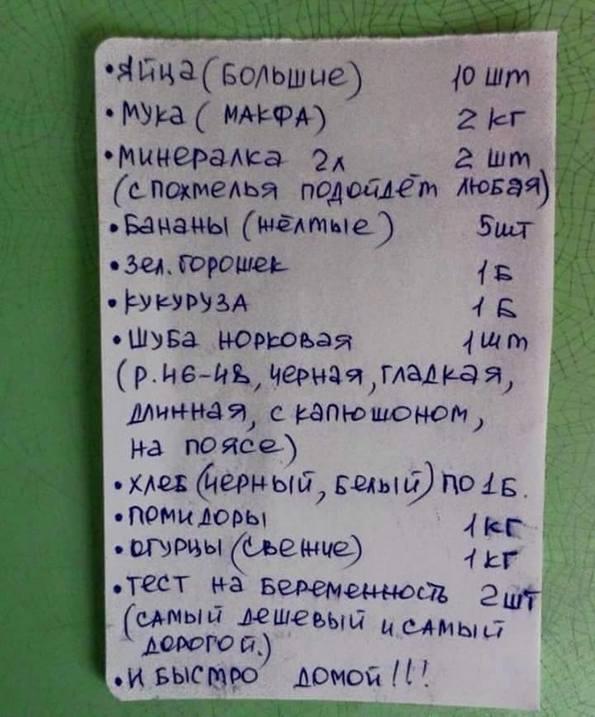 •ЯЙЦА (БОЛЬШИЕ) 10 ШТ
•МУКА ( МАКФА) 2 КГ
•МИНЕРАЛКА 2Л 2 ШТ
(С ПОХМЕЛЬЯ ПОДОЙДЁТ ЛЮБАЯ)
•БАНАНЫ (ЖЁЛТЫЕ) 5ШТ
•ЗЕЛ. ГОРОШЕК 1Б
•КУКУРУЗА 1 Б
•ШУБА НОРКОВАЯ 1ШТ
(Р.46-48, ЧЕРНАЯ, ГЛАДКАЯ,
ДЛИННАЯ, С КАПЮШОНОМ,
НА ПОЯСЕ)
•ХЛЕБ (ЧЕРНЫЙ, БЕЛЫЙ) ПО 1Б.
•ПОМИДОРЫ 1КГ
•ОГУРЦЫ (СВЕЖИЕ) 1КГ
•ТЕСТ НА БЕРЕМЕННОСТЬ 2ШТ
(САМЫЙ ДЕШЕВЫЙ И САМЫЙ
ДОРОГОЙ.)
•И БЫСТРО ДОМОЙ!!!